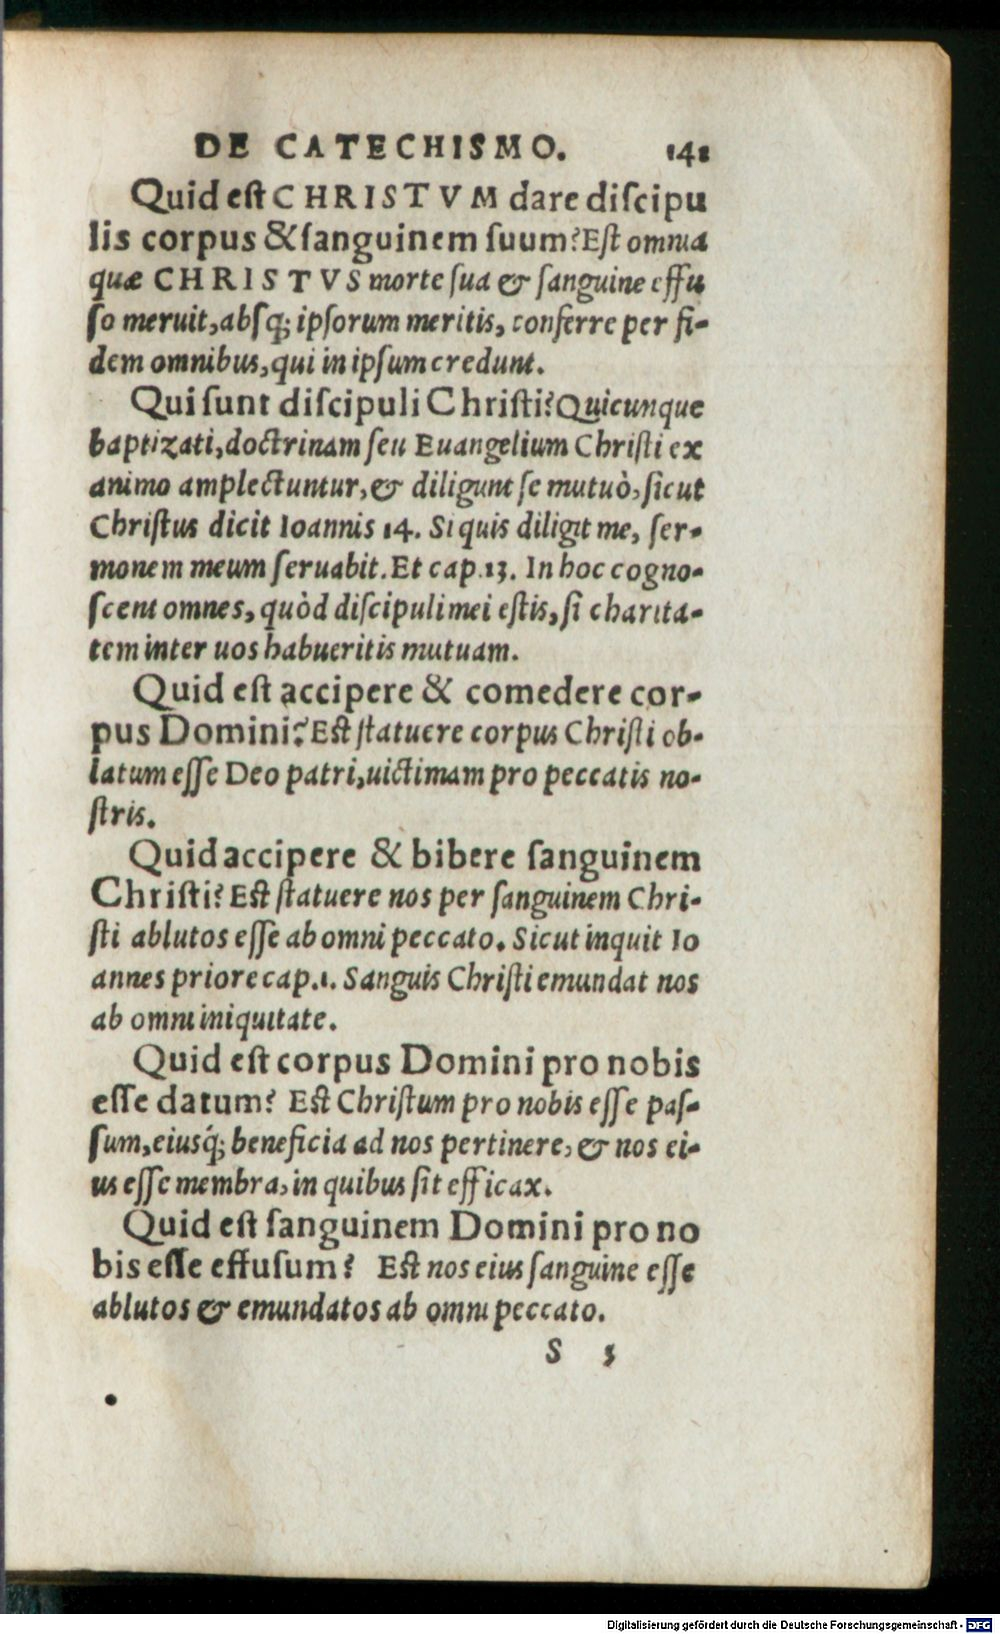 DE CATECHISMO. 141
Quid est CHRISTVM dare discipu
lis corpus & sanguinem suum? Est omnia
quæ CHRISTVS morte sua & sanguine effu
so meruit, absq; ipsorum meritis, conferre per fi-
dem omnibus, qui in ipsum credunt.
Qui sunt discipuli Christi? Quicunque
baptizati, doctrinam seu Euangelium Christi ex
animo amplectuntur, & diligunt se mutuò, sicut
Christus dicit Ioannis 14. Si quis diligit me, ser-
monem meum seruabit. Et cap. 13. In hoc cogno-
scent omnes, quòd discipuli mei estis, si charita-
tem inter uos habueritis mutuam.
Quid est accipere & comedere cor-
pus Domini? Est statuere corpus Christi ob-
latum esse Deo patri, uictimam pro peccatis no-
stris.
Quid accipere & bibere sanguinem
Christi? Est statuere nos per sanguinem Chri-
sti ablutos esse ab omni peccato. Sicut inquit Io
annes priore cap. 1. Sanguis Christi emundat nos
ab omni iniquitate.
Quid est corpus Domini pro nobis
esse datum? Est Christum pro nobis esse pas-
sum, eiusq́; beneficia ad nos pertinere, & nos ei-
us esse membra, in quibus sit efficax.
Quid est sanguinem Domini pro no
bis esse effusum? Est nos eius sanguine esse
ablutos & emundatos ab omni peccato.
S 5
Digitalisierung gefördert durch die Deutsche Forschungsgemeinschaft - DFG